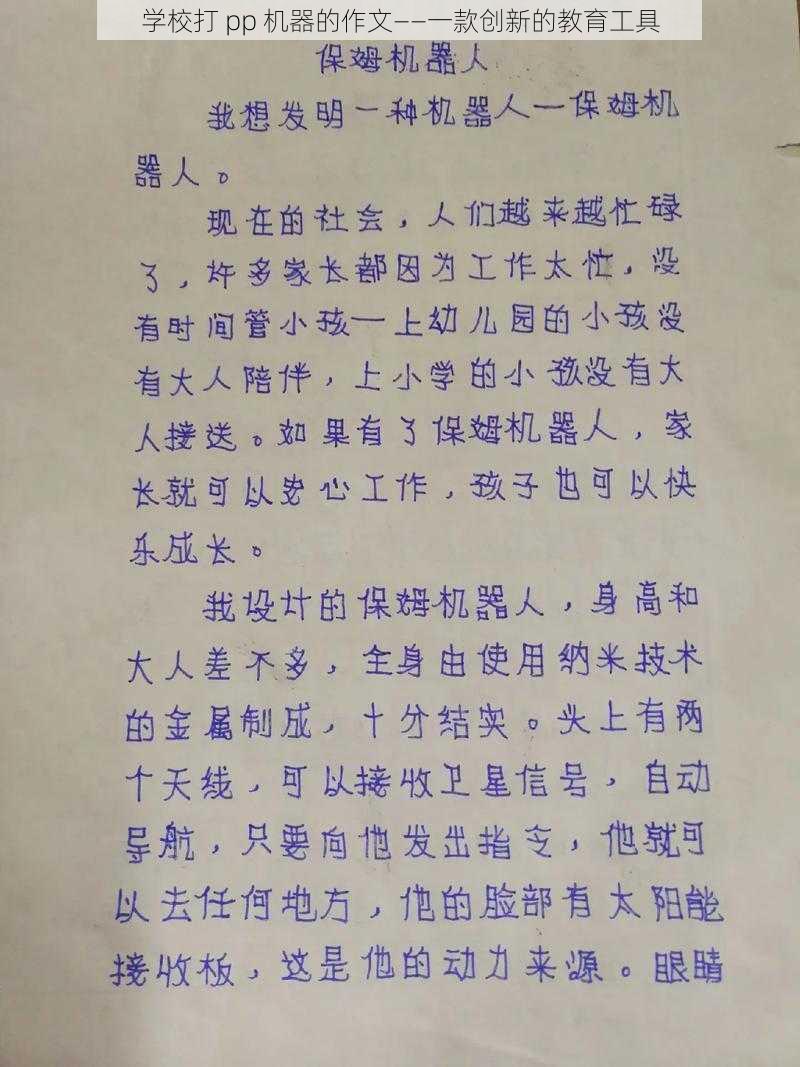 学校打 pp 机器的作文——一款创新的教育工具
保姆机器人
我想发明一种机器人—保姆机
器人。
现在的社会，人们越来越忙碌
了，许多家长都因为工作太忙，没
有时间管小孩—上幼儿园的小孩没
有大人陪伴，上小学的小孩没有大
人接送。如果有了保姆机器人，家
长就可以安心工作，孩子也可以快
乐成长。
我设计的保姆机器人，身高和
大人差不多，全身由使用纳米技术
的金属制成，十分结实。头上有两
个天线，可以接收卫星信号，自动
导航，只要向他发出指令，他就可
以去任何地方，他的脸部有太阳能
接收板，这是他的动力来源。眼睛